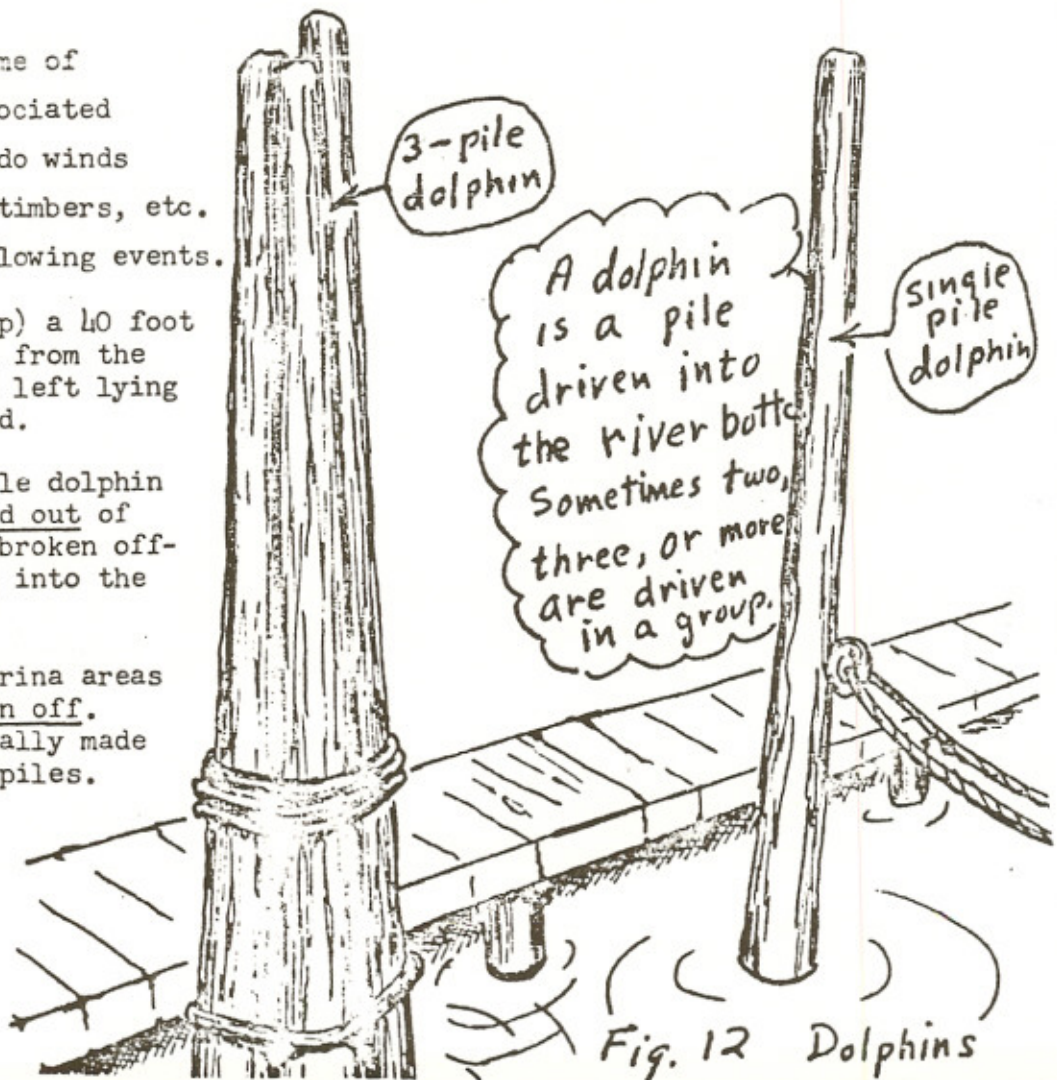 me of
ociated
do winds
timbers, etc.
lowing events.
p) a 40 foot
from the
left lying
d.
le dolphin
d out of
broken off-
into the
rina areas
n off.
ally made
piles.
3-pile
dolphin
A dolphin
is a pile
driven into
the river botto
Sometimes two,
three, or more
are driven
in a group.
single
pile
dolphin
Fig. 12 Dolphins